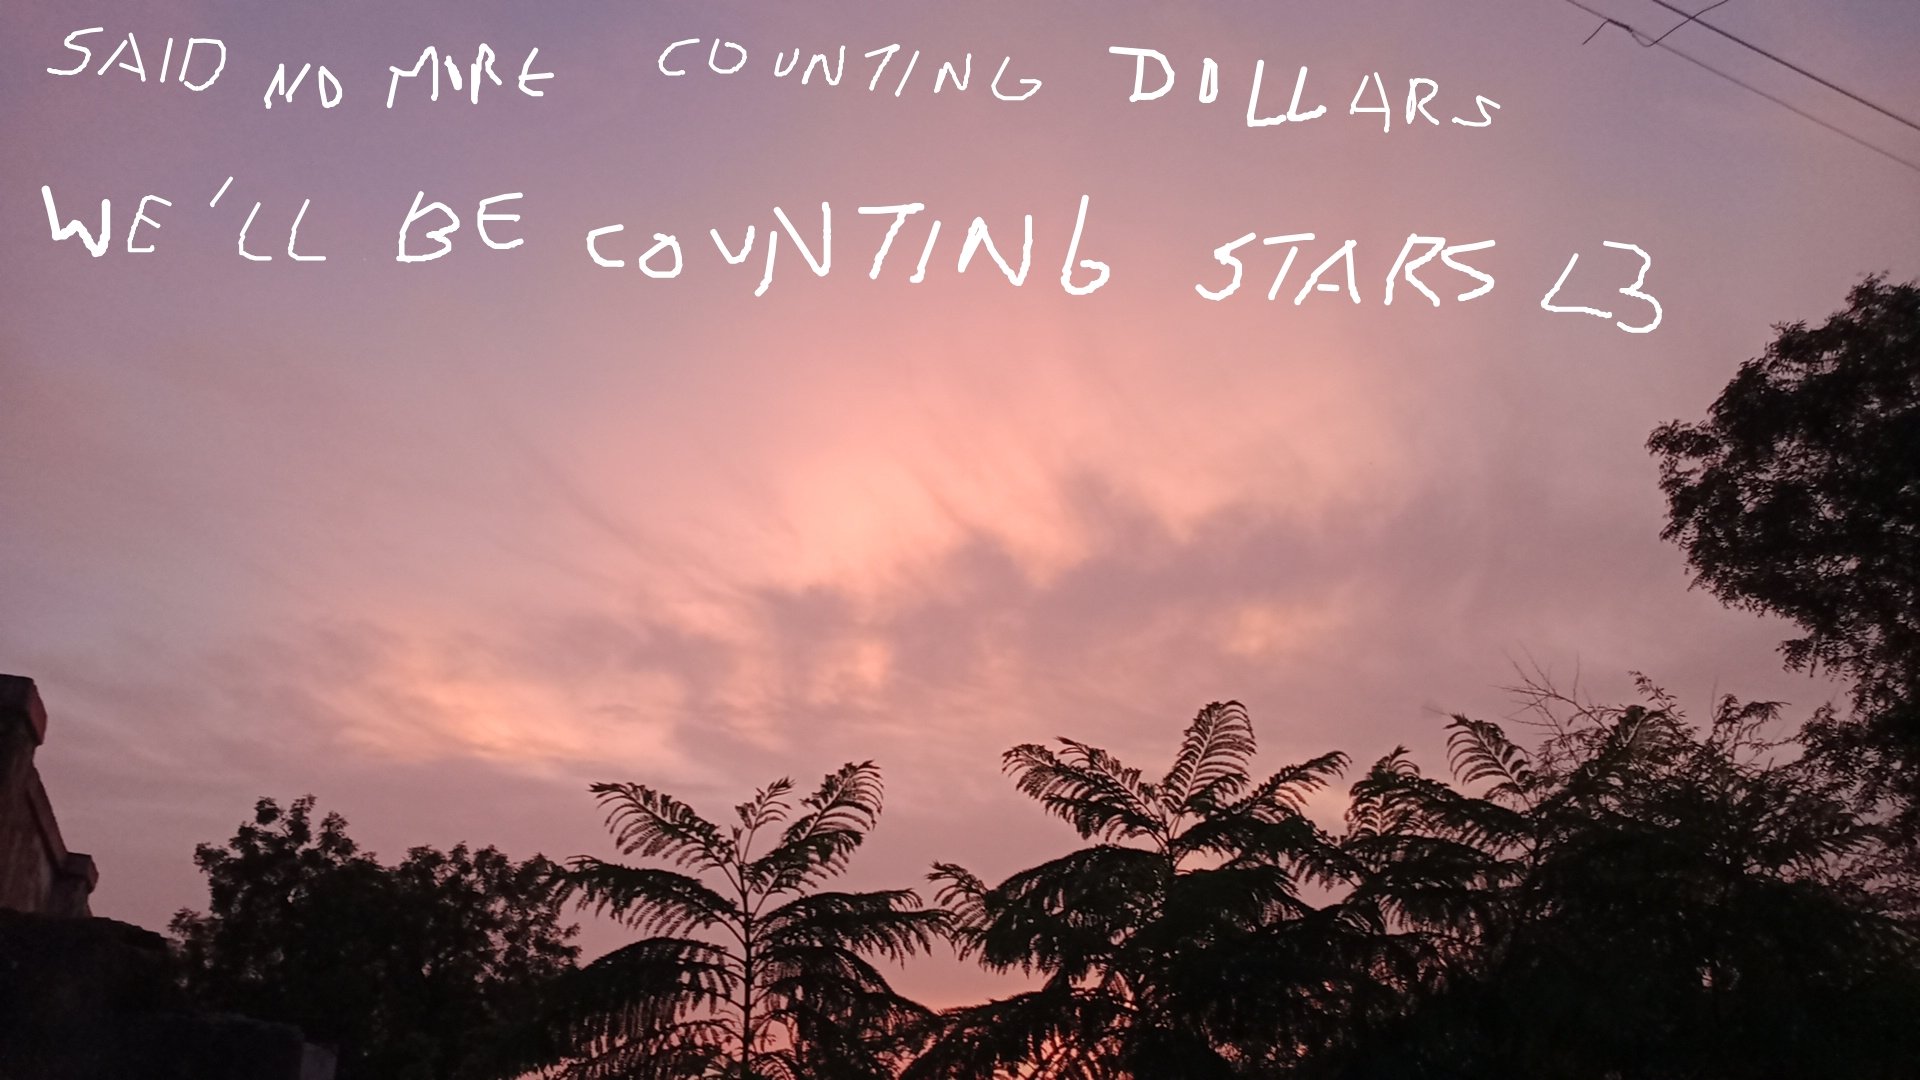 SAID NO MORE COUNTING DOLLARS
WE'LL BE COUNTING STARS <3